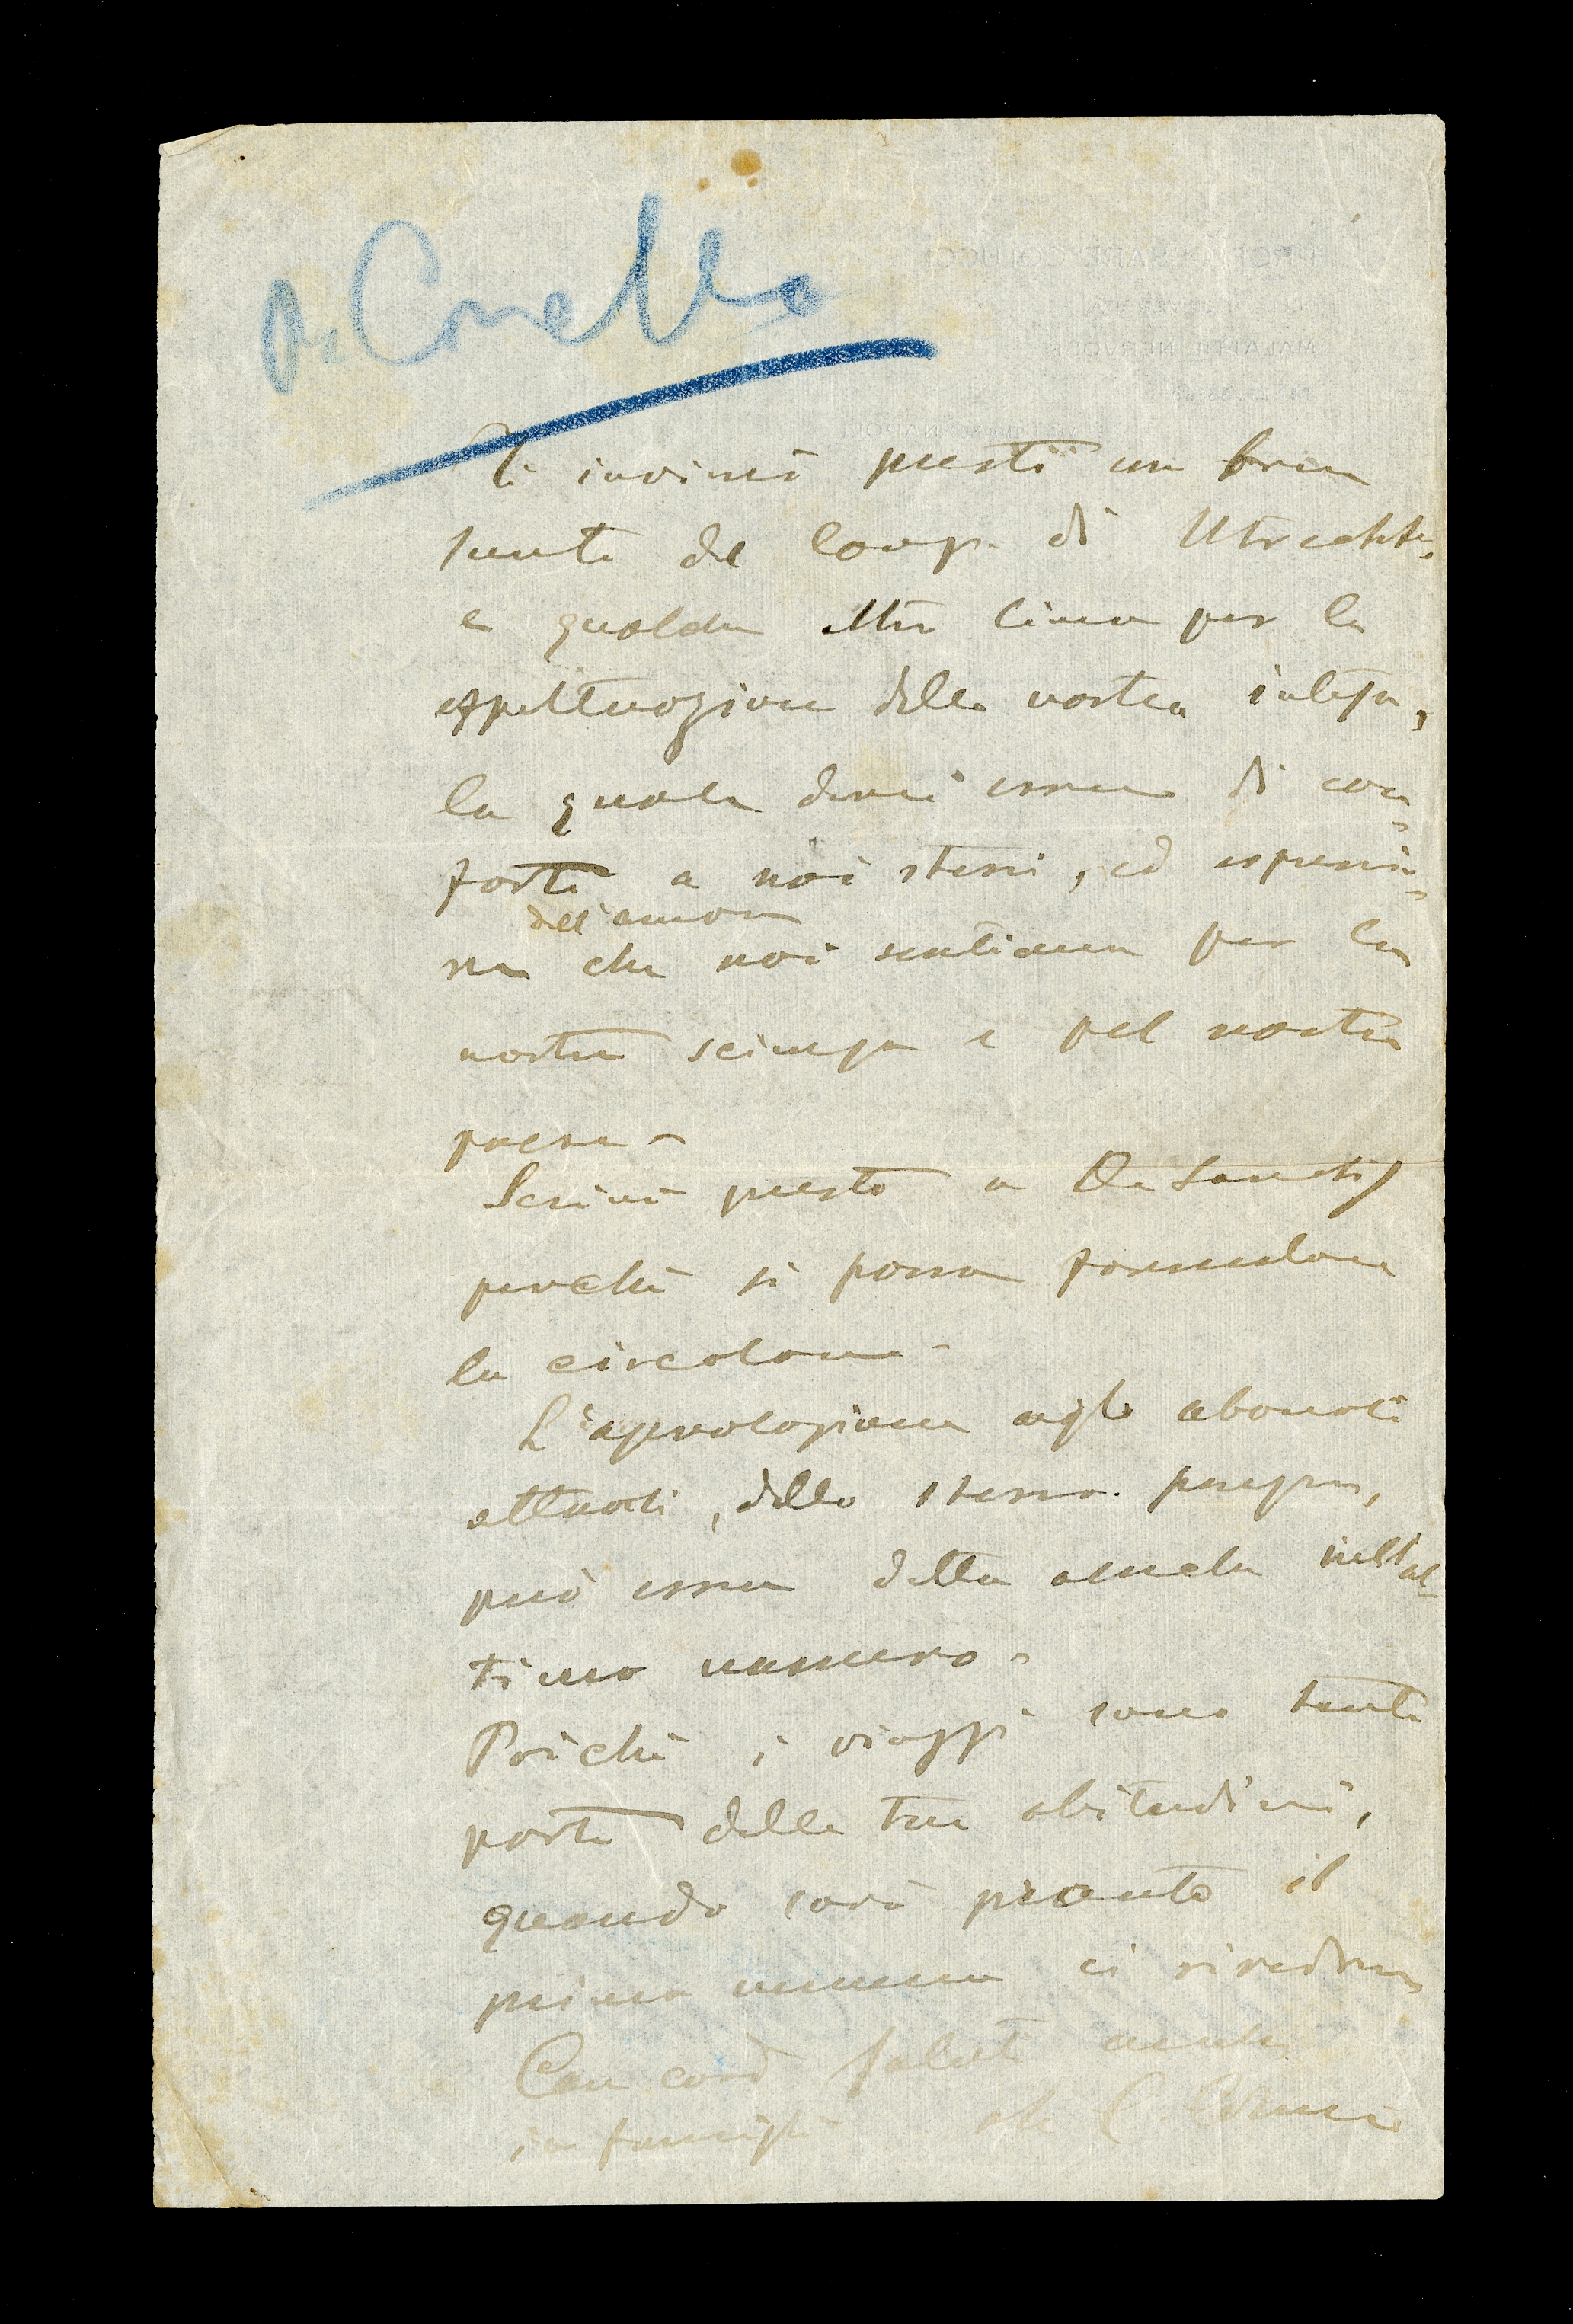 Ti invierò presto un breve
sunto del Cong. di Utrecht,
e qualche altra linea per la
effettuazione della nostra intesa,
la quale deve essere di con-
forto a noi stessi, ed espressio-
dell'amore
ne che noi sentiamo per la
nostra scienza e pel nostro
paese -
Scrivi presto a De Sanctis
perchè si possa formulare
la circolare -
L'agevolazione agli abonati
attuali, dello stesso prezzo,
può essere detta anche nell'ul-
timo numero -
Poichè i viaggi sono tanta
parte delle tue abitudini,
quando sarà pronto il
primo numero ci rivedremo
Con cord saluti anche
in famiglia C. Colucci